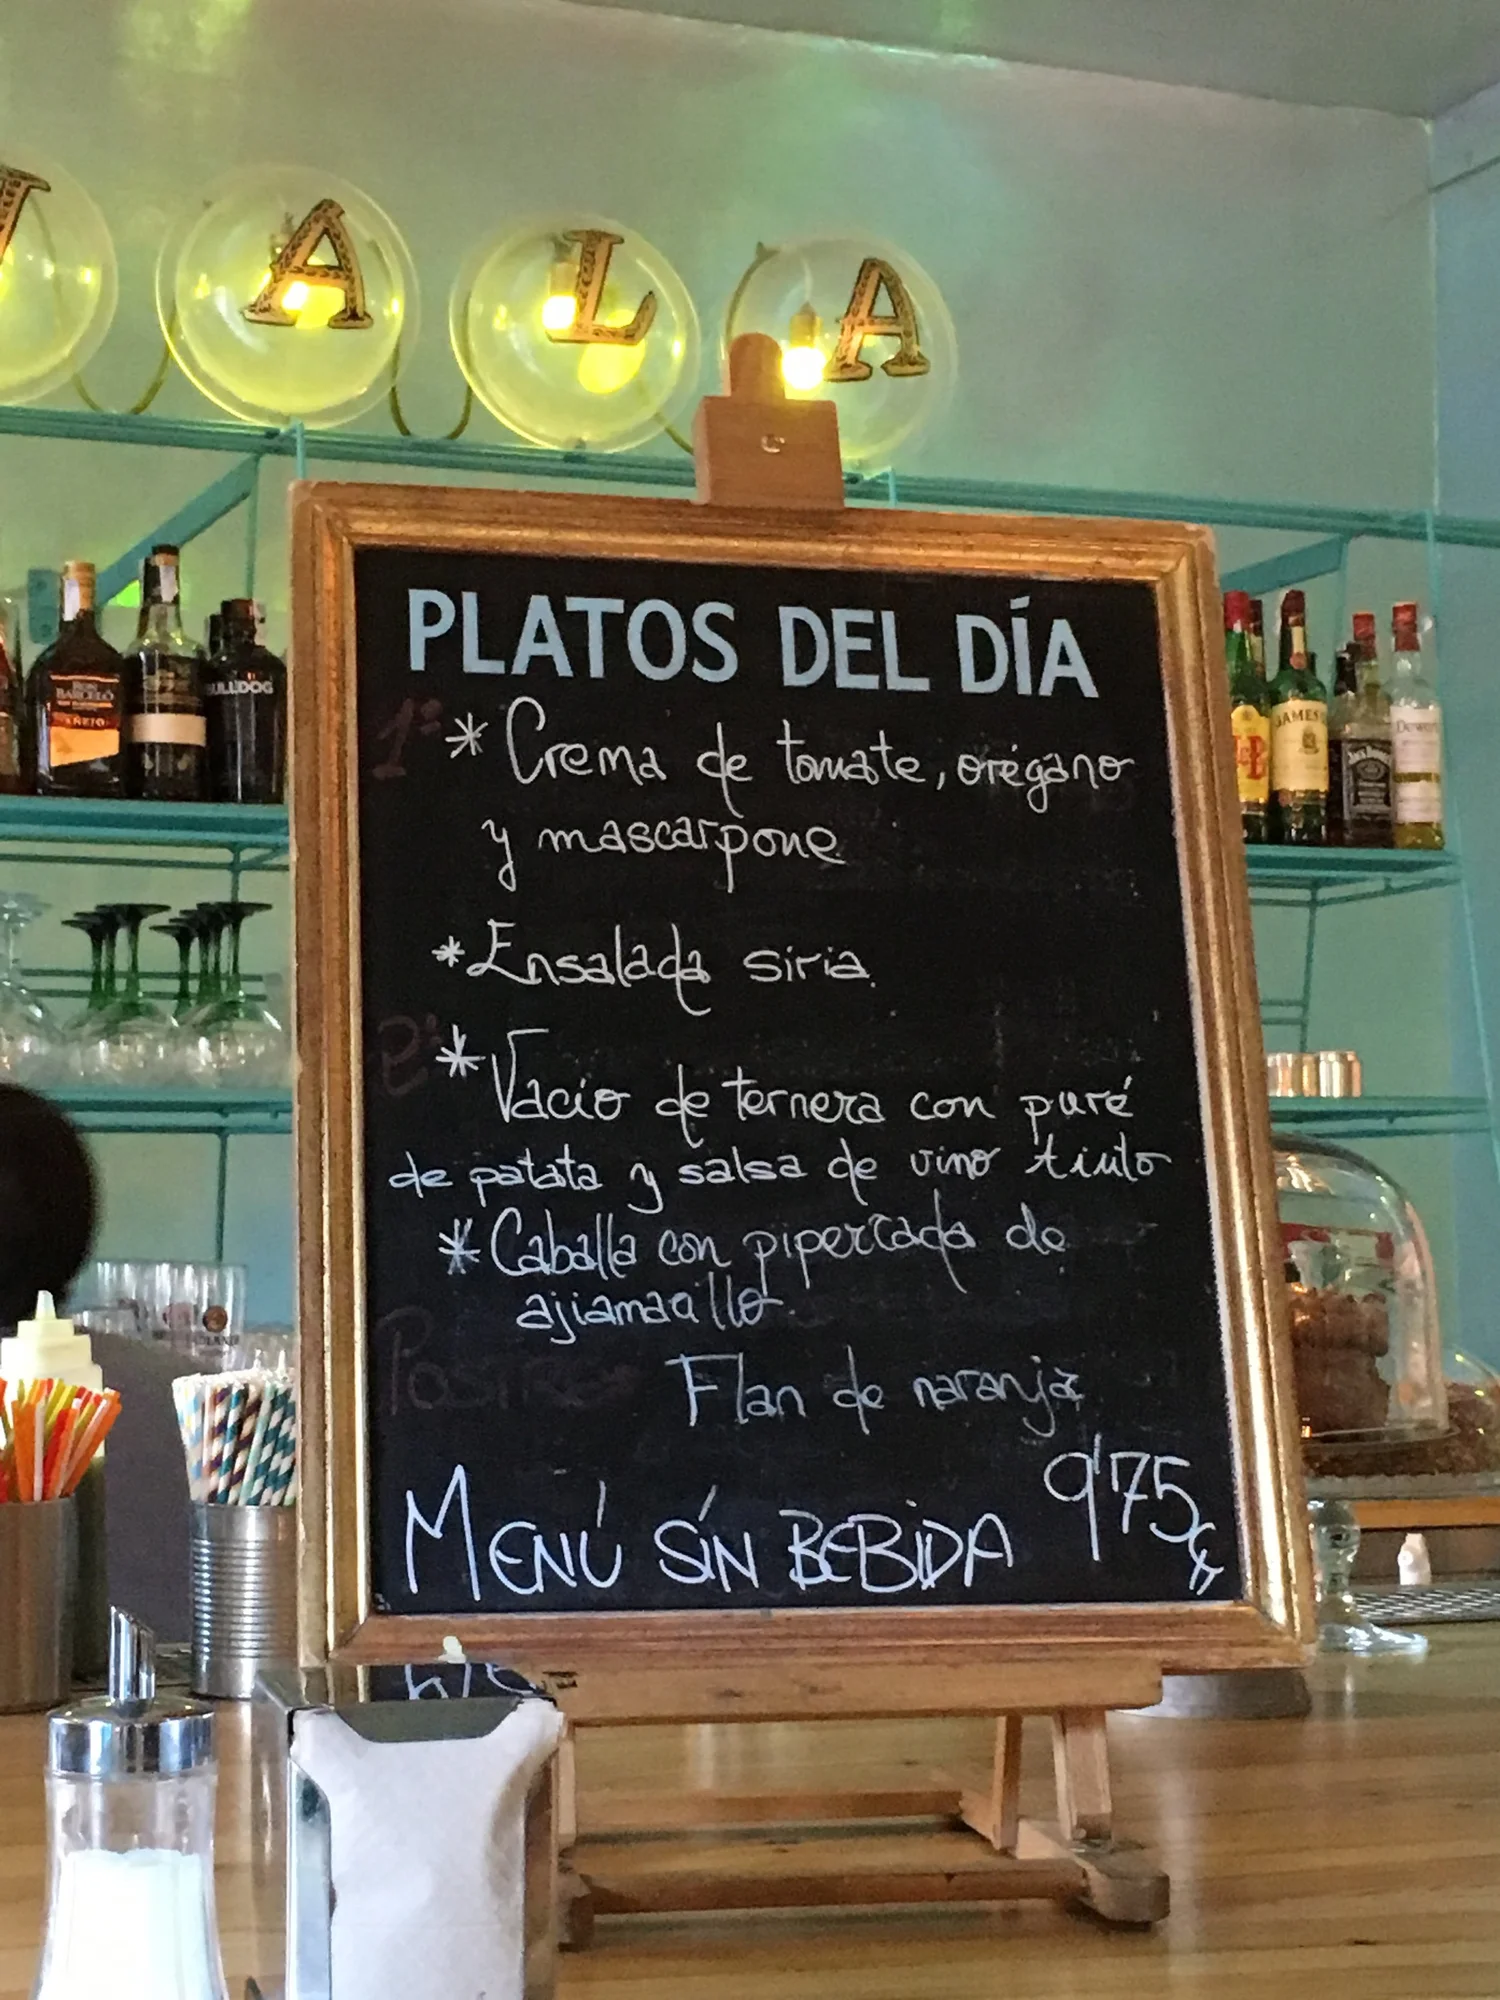 A L A
PLATOS DEL DÍA
1º
* Crema de tomate, orégano
y mascarpone
* Ensalada siria.
2º
* Vacío de ternera con puré
de patata y salsa de vino tinto
* Caballa con piperrada de
ajiamaallo.
Postre
Flan de naranja
MENÚ SÍN BEBIDA 9'75€
RON BARCELÓ
AÑEJO
BULLDOG
J&B
JAMES
JACK DANIEL'S
Dewar's